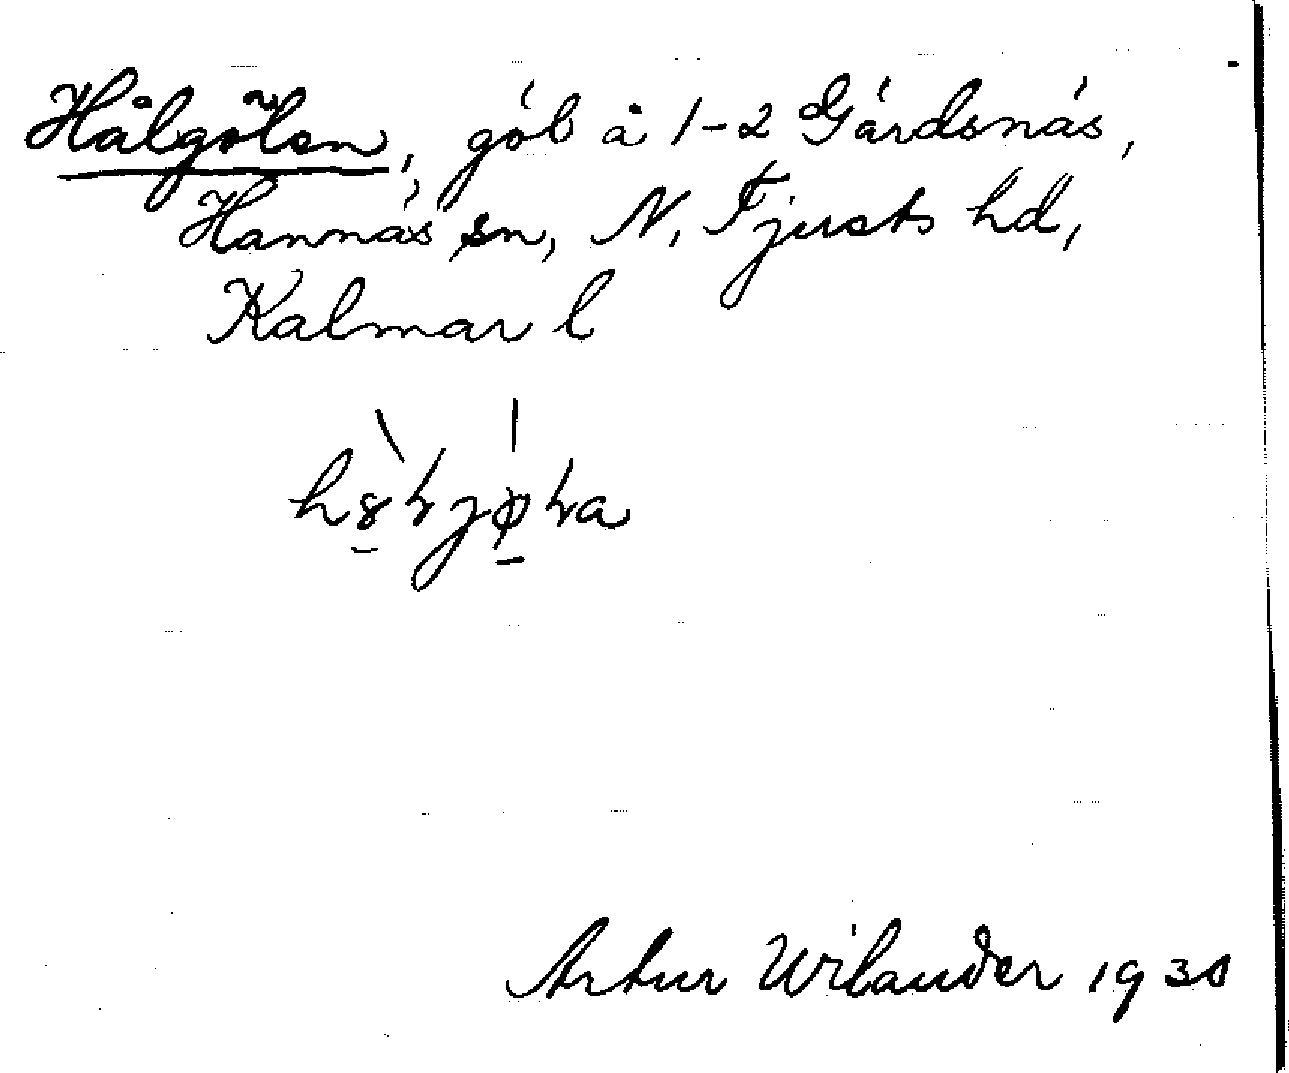 Hålgölen, göl å 1-2 Gärdsnäs,
Hannäs sn, N. Tjusts hd,
Kalmar l
Artur Wilander 1930